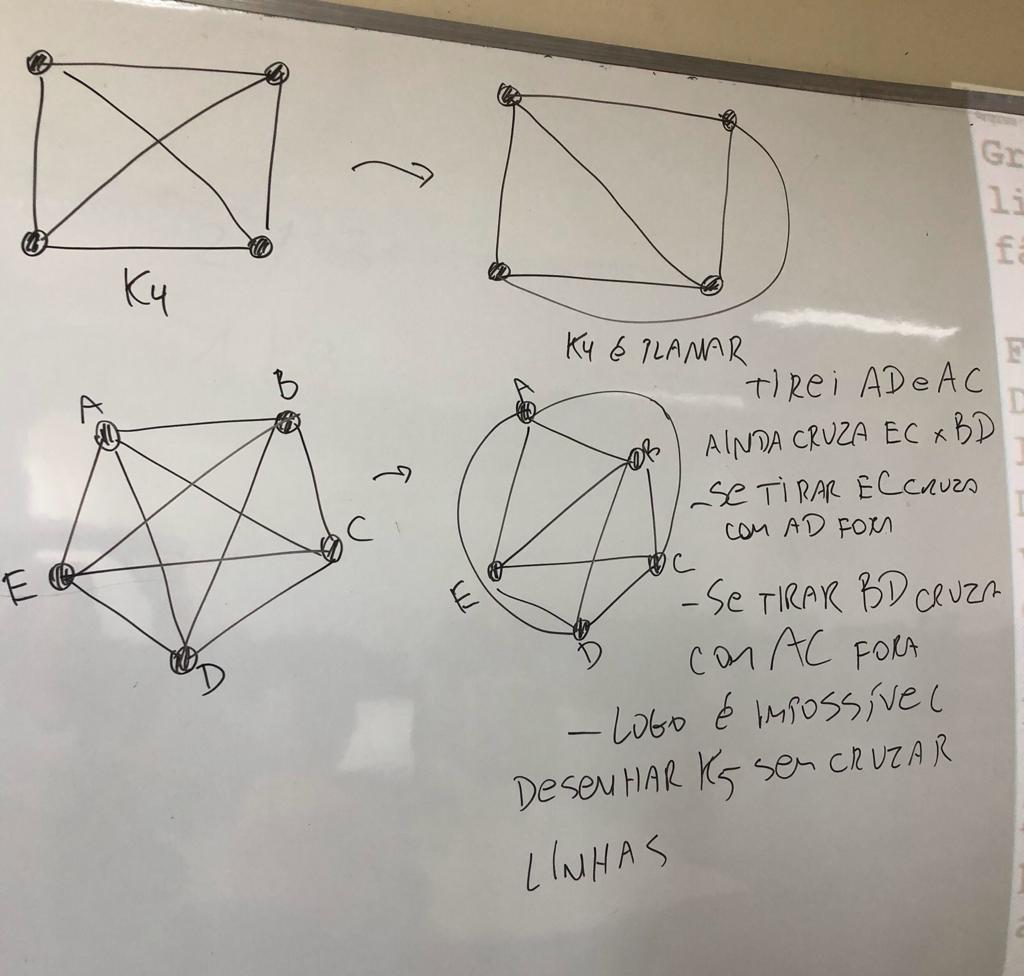 K4
K4 é PLANAR
A
B
C
D
E
A
B
C
D
E
TIREI AD e AC
AINDA CRUZA EC x BD
- SE TIRAR EC CRUZA
COM AD FORA
- SE TIRAR BD CRUZA
COM AC FORA
- LOGO é IMPOSSÍVEL
DESENHAR K5 SEM CRUZAR
LINHAS
Gr
li
fá